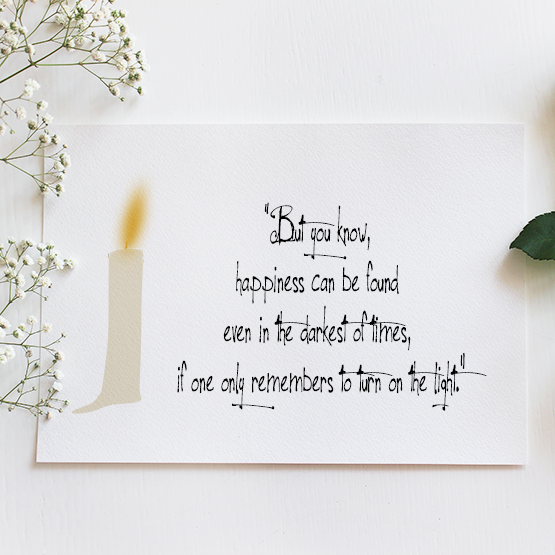 "But you know,
happiness can be found
even in the darkest of times,
if one only remembers to turn on the light."